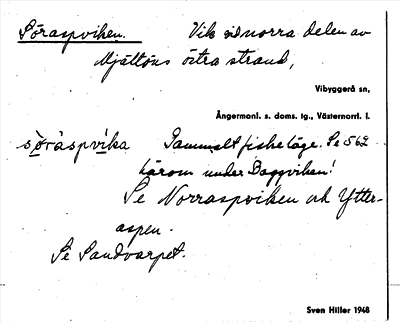 Söraspviken. Vik vid norra delen av
Mjältöns östra strand,
Vibyggerå sn,
Ångermanl. s. doms. tg., Västernorrl. l.
sö̀ràspvika Gammalt fiskeläge. Se 562
härom under Baggviken!
Se Norraspviken och Ytter-
aspen.
Se Sandvarpet.
Sven Hiller 1948